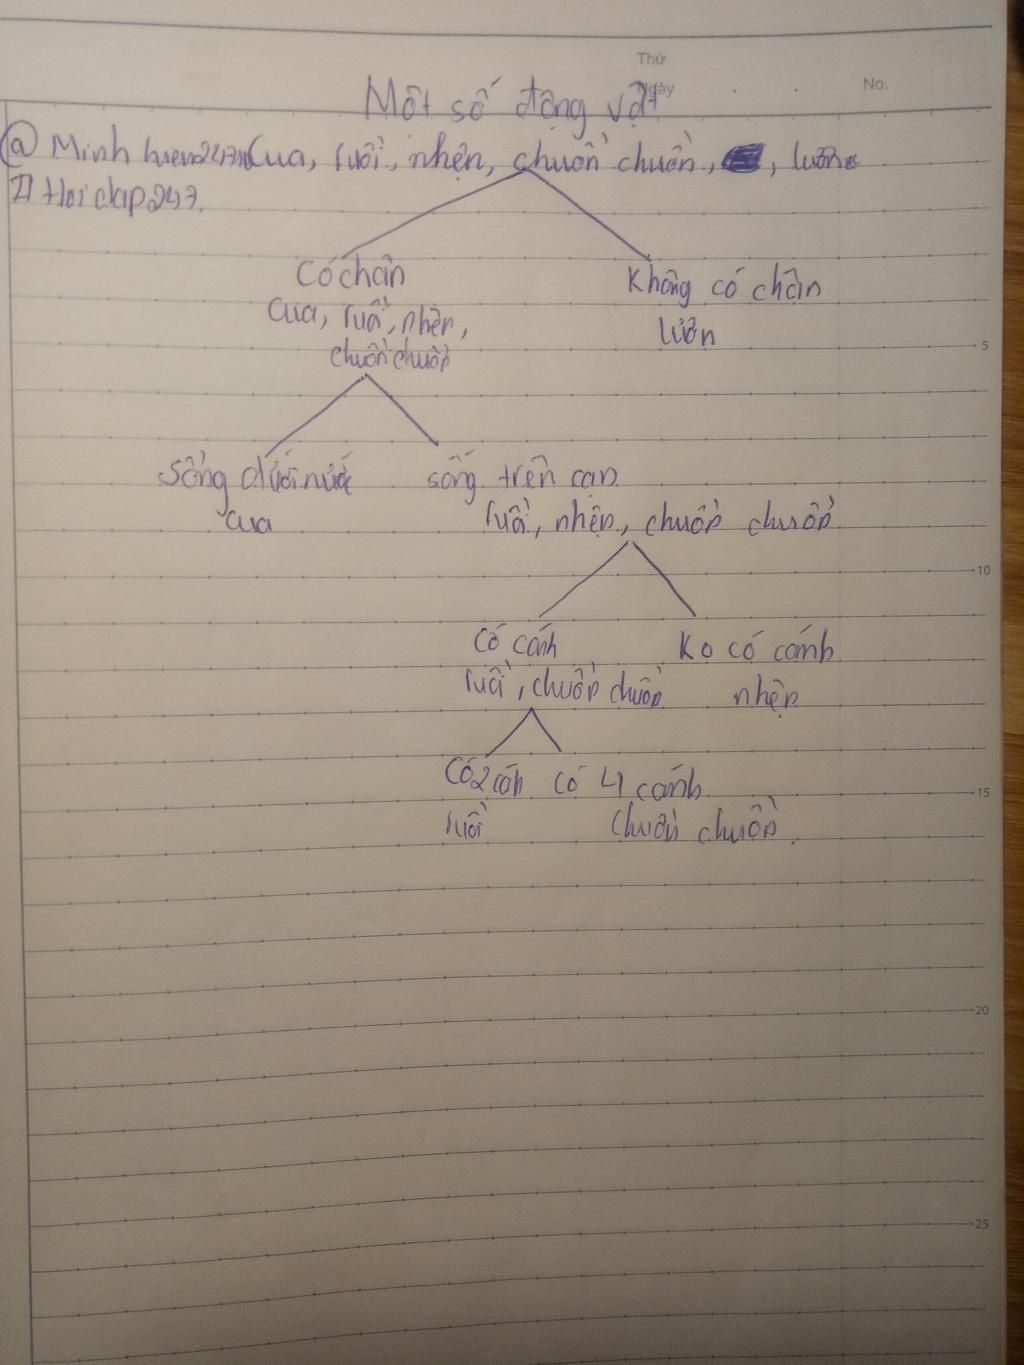 Thứ
Ngày
No.
Một số động vật
@ Minh hien247 Cua, ruồi, nhện, chuồn chuồn, , lươn
Hoi dap 247.
Có chân
Không có chân
Cua, ruồi, nhện,
chuồn chuồn
lươn
Sống dưới nước
sống trên cạn
cua
ruồi, nhện, chuồn chuồn
Có cánh
Ko có cánh
ruồi, chuồn chuồn
nhện
Có 2 cánh
có 4 cánh
ruồi
Chuồn chuồn.
5
10
15
20
25